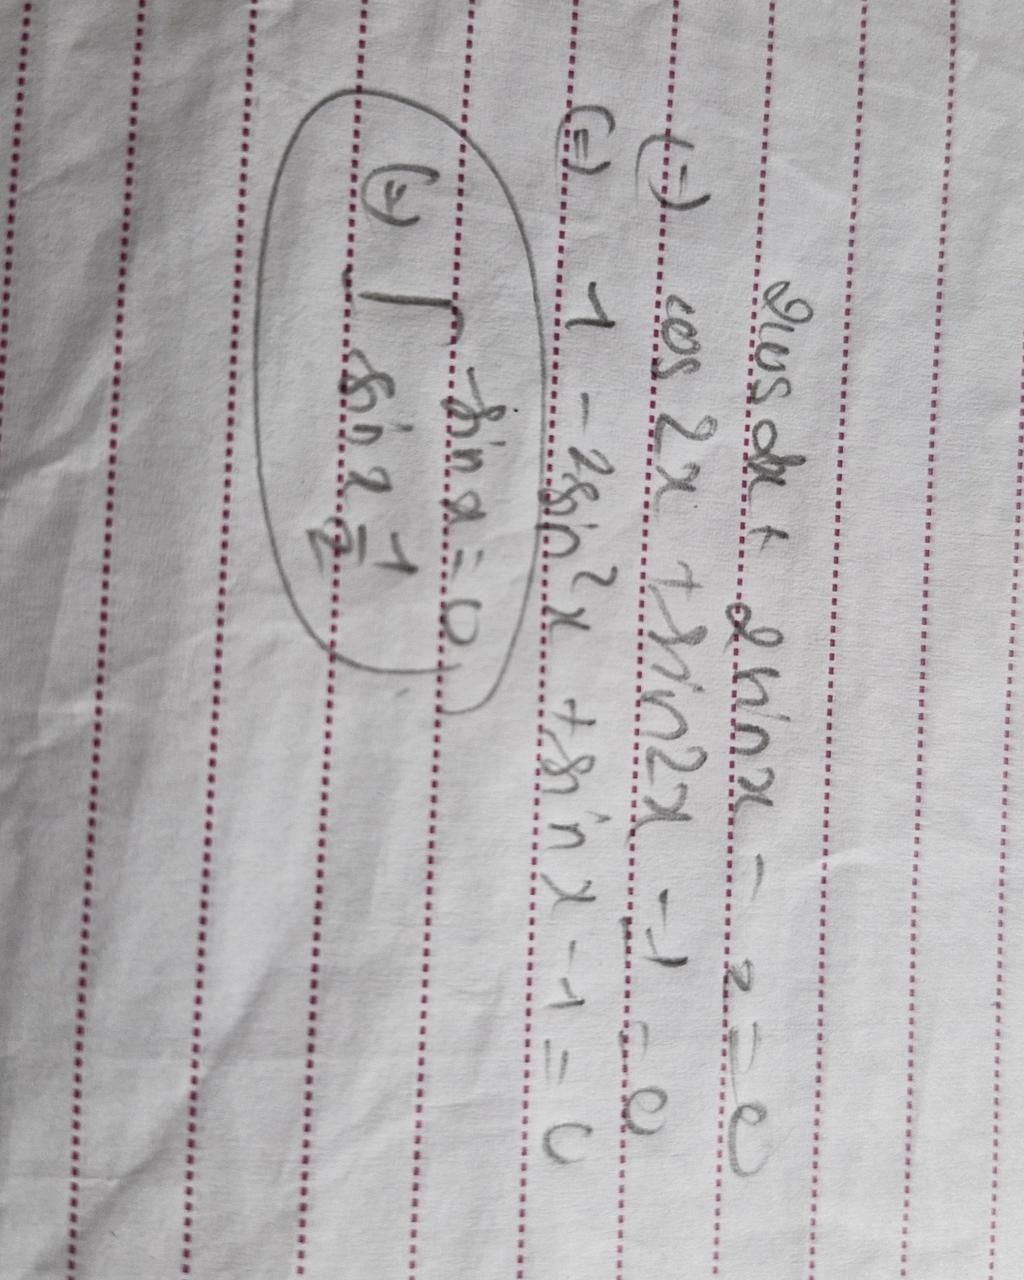 2cos2x + 2sinx - 2 = 0
(=) cos 2x + sin2x - 1 = 0
(=) 1 - 2sin²x + sin x - 1 = 0
(=) [ sin x = 0
sin x 1/2